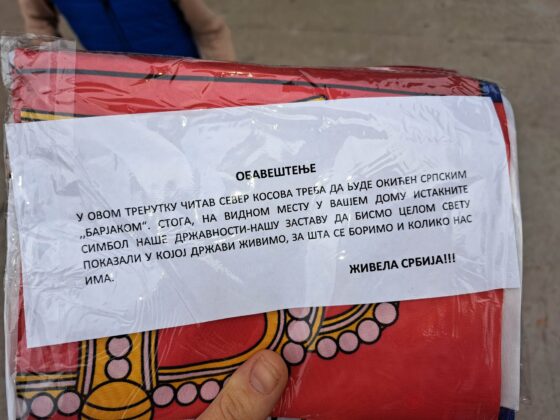 ОБАВЕШТЕЊЕ
У ОВОМ ТРЕНУТКУ ЧИТАВ СЕВЕР КОСОВА ТРЕБА ДА БУДЕ ОКИЋЕН СРПСКИМ
,,БАРЈАКОМ“. СТОГА, НА ВИДНОМ МЕСТУ У ВАШЕМ ДОМУ ИСТАКНИТЕ
СИМБОЛ НАШЕ ДРЖАВНОСТИ-НАШУ ЗАСТАВУ ДА БИСМО ЦЕЛОМ СВЕТУ
ПОКАЗАЛИ У КОЈОЈ ДРЖАВИ ЖИВИМО, ЗА ШТА СЕ БОРИМО И КОЛИКО НАС
ИМА.
ЖИВЕЛА СРБИЈА!!!